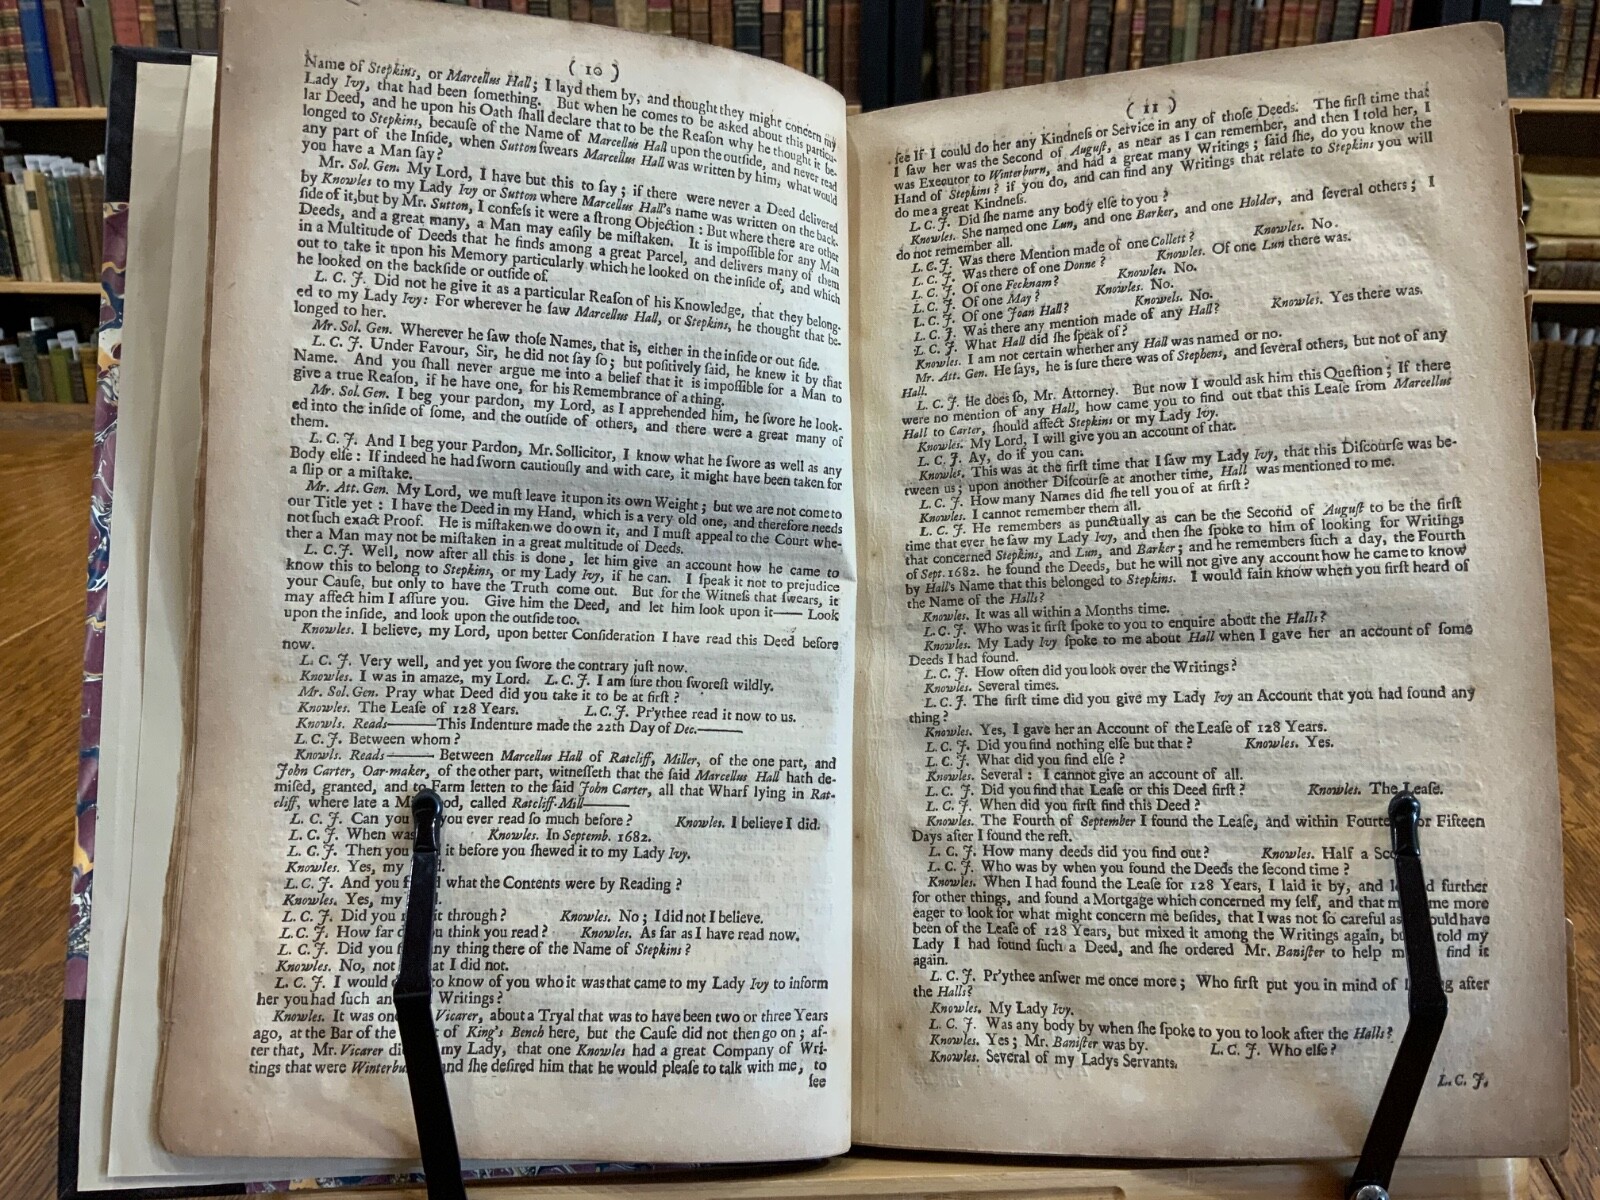 ( 10 )
Name of Stepkins, or Marcellus Hall; I layd them by, and thought they might concern my
Lady Ivy, that had been ſomething. But when he comes to be asked about this particu-
lar Deed, and he upon his Oath ſhall declare that to be the Reaſon why he thought it be-
longed to Stepkins, becauſe of the Name of Marcellus Hall upon the outſide, and never read
any part of the Inſide, when Sutton ſwears Marcellus Hall was written by him, what would
you have a Man ſay?
Mr. Sol. Gen. My Lord, I have but this to ſay; if there were never a Deed delivered
by Knowles to my Lady Ivy or Sutton where Marcellus Hall's name was written on the back-
ſide of it, but by Mr. Sutton, I confeſs it were a ſtrong Objection: But where there are other
Deeds, and a great many, a Man may eaſily be miſtaken. It is impoſſible for any Man
in a Multitude of Deeds that he finds among a great Parcel, and delivers many of them
out to take it upon his Memory particularly which he looked on the inſide of, and which
he looked on the backſide or outſide of.
L. C. J. Did not he give it as a particular Reaſon of his Knowledge, that they belong-
ed to my Lady Ivy: For wherever he ſaw Marcellus Hall, or Stepkins, he thought that be-
longed to her.
Mr. Sol. Gen. Wherever he ſaw thoſe Names, that is, either in the inſide or out ſide.
L. C. J. Under Favour, Sir, he did not ſay ſo; but poſitively ſaid, he knew it by that
Name. And you ſhall never argue me into a belief that it is impoſſible for a Man to
give a true Reaſon, if he have one, for his Remembrance of a thing.
Mr. Sol. Gen. I beg your pardon, my Lord, as I apprehended him, he ſwore he look-
ed into the inſide of ſome, and the outſide of others, and there were a great many of
them.
L. C. J. And I beg your Pardon, Mr. Sollicitor, I know what he ſwore as well as any
Body elſe: If indeed he had ſworn cautiouſly and with care, it might have been taken for
a ſlip or a miſtake.
Mr. Att. Gen. My Lord, we muſt leave it upon its own Weight; but we are not come to
our Title yet: I have the Deed in my Hand, which is a very old one, and therefore needs
not ſuch exact Proof. He is miſtaken, we do own it, and I muſt appeal to the Court whe-
ther a Man may not be miſtaken in a great multitude of Deeds.
L. C. J. Well, now after all this is done, let him give an account how he came to
know this to belong to Stepkins, or my Lady Ivy, if he can. I ſpeak it not to prejudice
your Cauſe, but only to have the Truth come out. But for the Witneſs that ſwears, it
may affect him I aſſure you. Give him the Deed, and let him look upon it—— Look
upon the inſide, and look upon the outſide too.
Knowles. I believe, my Lord, upon better Conſideration I have read this Deed before
now.
L. C. J. Very well, and yet you ſwore the contrary juſt now.
Knowles. I was in amaze, my Lord. L. C. J. I am ſure thou ſworeſt wildly.
Mr. Sol. Gen. Pray what Deed did you take it to be at firſt?
Knowles. The Leaſe of 128 Years. L. C. J. Pr'ythee read it now to us.
Knowls. Reads——This Indenture made the 22th Day of Dec.——
L. C. J. Between whom?
Knowls. Reads—— Between Marcellus Hall of Ratcliff, Miller, of the one part, and
John Carter, Oar-maker, of the other part, witneſſeth that the ſaid Marcellus Hall hath de-
miſed, granted, and to Farm letten to the ſaid John Carter, all that Wharf lying in Rat-
cliff, where late a Mi ood, called Ratcliff-Mill——
L. C. J. Can you you ever read ſo much before? Knowles. I believe I did.
L. C. J. When was Knowles. In Septemb. 1682.
L. C. J. Then you it before you ſhewed it to my Lady Ivy.
Knowles. Yes, my
L. C. J. And you what the Contents were by Reading?
Knowles. Yes, my
L. C. J. Did you it through? Knowles. No; I did not I believe.
L. C. J. How far d u think you read? Knowles. As far as I have read now.
L. C. J. Did you ny thing there of the Name of Stepkins?
Knowles. No, not at I did not.
L. C. J. I would to know of you who it was that came to my Lady Ivy to inform
her you had ſuch an Writings?
Knowles. It was one Vicarer, about a Tryal that was to have been two or three Years
ago, at the Bar of the of King's Bench here, but the Cauſe did not then go on; af-
ter that, Mr. Vicarer di my Lady, that one Knowles had a great Company of Wri-
tings that were Winterbu nd ſhe deſired him that he would pleaſe to talk with me, to
ſee
( 11 )
ſee If I could do her any Kindneſs or Service in any of thoſe Deeds. The firſt time that
I ſaw her was the Second of Auguſt, as near as I can remember, and then I told her, I
was Executor to Winterburn, and had a great many Writings; ſaid ſhe, do you know the
Hand of Stepkins? if you do, and can find any Writings that relate to Stepkins you will
do me a great Kindneſs.
L. C. J. Did ſhe name any body elſe to you?
Knowles. She named one Lun, and one Barker, and one Holder, and ſeveral others; I
do not remember all.
L. C. J. Was there Mention made of one Collett? Knowles. No.
L. C. J. Was there of one Donne? Knowles. Of one Lun there was.
L. C. J. Of one Fecknam? Knowles. No.
L. C. J. Of one May? Knowles. No.
L. C. J. Of one Joan Hall? Knowels. No.
L. C. J. Was there any mention made of any Hall? Knowles. Yes there was.
L. C. J. What Hall did ſhe ſpeak of?
Knowles. I am not certain whether any Hall was named or no.
Mr. Att. Gen. He ſays, he is ſure there was of Stephens, and ſeveral others, but not of any
Hall.
L. C. J. He does ſo, Mr. Attorney. But now I would ask him this Queſtion; If there
were no mention of any Hall, how came you to find out that this Leaſe from Marcellus
Hall to Carter, ſhould affect Stepkins or my Lady Ivy.
Knowles. My Lord, I will give you an account of that.
L. C. J. Ay, do if you can.
Knowles. This was at the firſt time that I ſaw my Lady Ivy, that this Diſcourſe was be-
tween us; upon another Diſcourſe at another time, Hall was mentioned to me.
L. C. J. How many Names did ſhe tell you of at firſt?
Knowles. I cannot remember them all.
L. C. J. He remembers as punctually as can be the Second of Auguſt to be the firſt
time that ever he ſaw my Lady Ivy, and then ſhe ſpoke to him of looking for Writings
that concerned Stepkins, and Lun, and Barker; and he remembers ſuch a day, the Fourth
of Sept. 1682. he found the Deeds, but he will not give any account how he came to know
by Hall's Name that this belonged to Stepkins. I would fain know when you firſt heard of
the Name of the Halls?
Knowles. It was all within a Months time.
L. C. J. Who was it firſt ſpoke to you to enquire about the Halls?
Knowles. My Lady Ivy ſpoke to me about Hall when I gave her an account of ſome
Deeds I had found.
L. C. J. How often did you look over the Writings?
Knowles. Several times.
L. C. J. The firſt time did you give my Lady Ivy an Account that you had found any
thing?
Knowles. Yes, I gave her an Account of the Leaſe of 128 Years.
L. C. J. Did you find nothing elſe but that? Knowles. Yes.
L. C. J. What did you find elſe?
Knowles. Several: I cannot give an account of all.
L. C. J. Did you find that Leaſe or this Deed firſt? Knowles. The Leaſe.
L. C. J. When did you firſt find this Deed?
Knowles. The Fourth of September I found the Leaſe, and within Fourte or Fifteen
Days after I found the reſt.
L. C. J. How many deeds did you find out? Knowles. Half a Sco
L. C. J. Who was by when you found the Deeds the ſecond time?
Knowles. When I had found the Leaſe for 128 Years, I laid it by, and l d further
for other things, and found a Mortgage which concerned my ſelf, and that m me more
eager to look for what might concern me beſides, that I was not ſo careful as ould have
been of the Leaſe of 128 Years, but mixed it among the Writings again, bu told my
Lady I had found ſuch a Deed, and ſhe ordered Mr. Baniſter to help m find it
again.
L. C. J. Pr'ythee anſwer me once more; Who firſt put you in mind of l g after
the Halls?
Knowles. My Lady Ivy.
L. C. J. Was any body by when ſhe ſpoke to you to look after the Halls?
Knowles. Yes; Mr. Baniſter was by. L. C. J. Who elſe?
Knowles. Several of my Ladys Servants.
L. C. J.